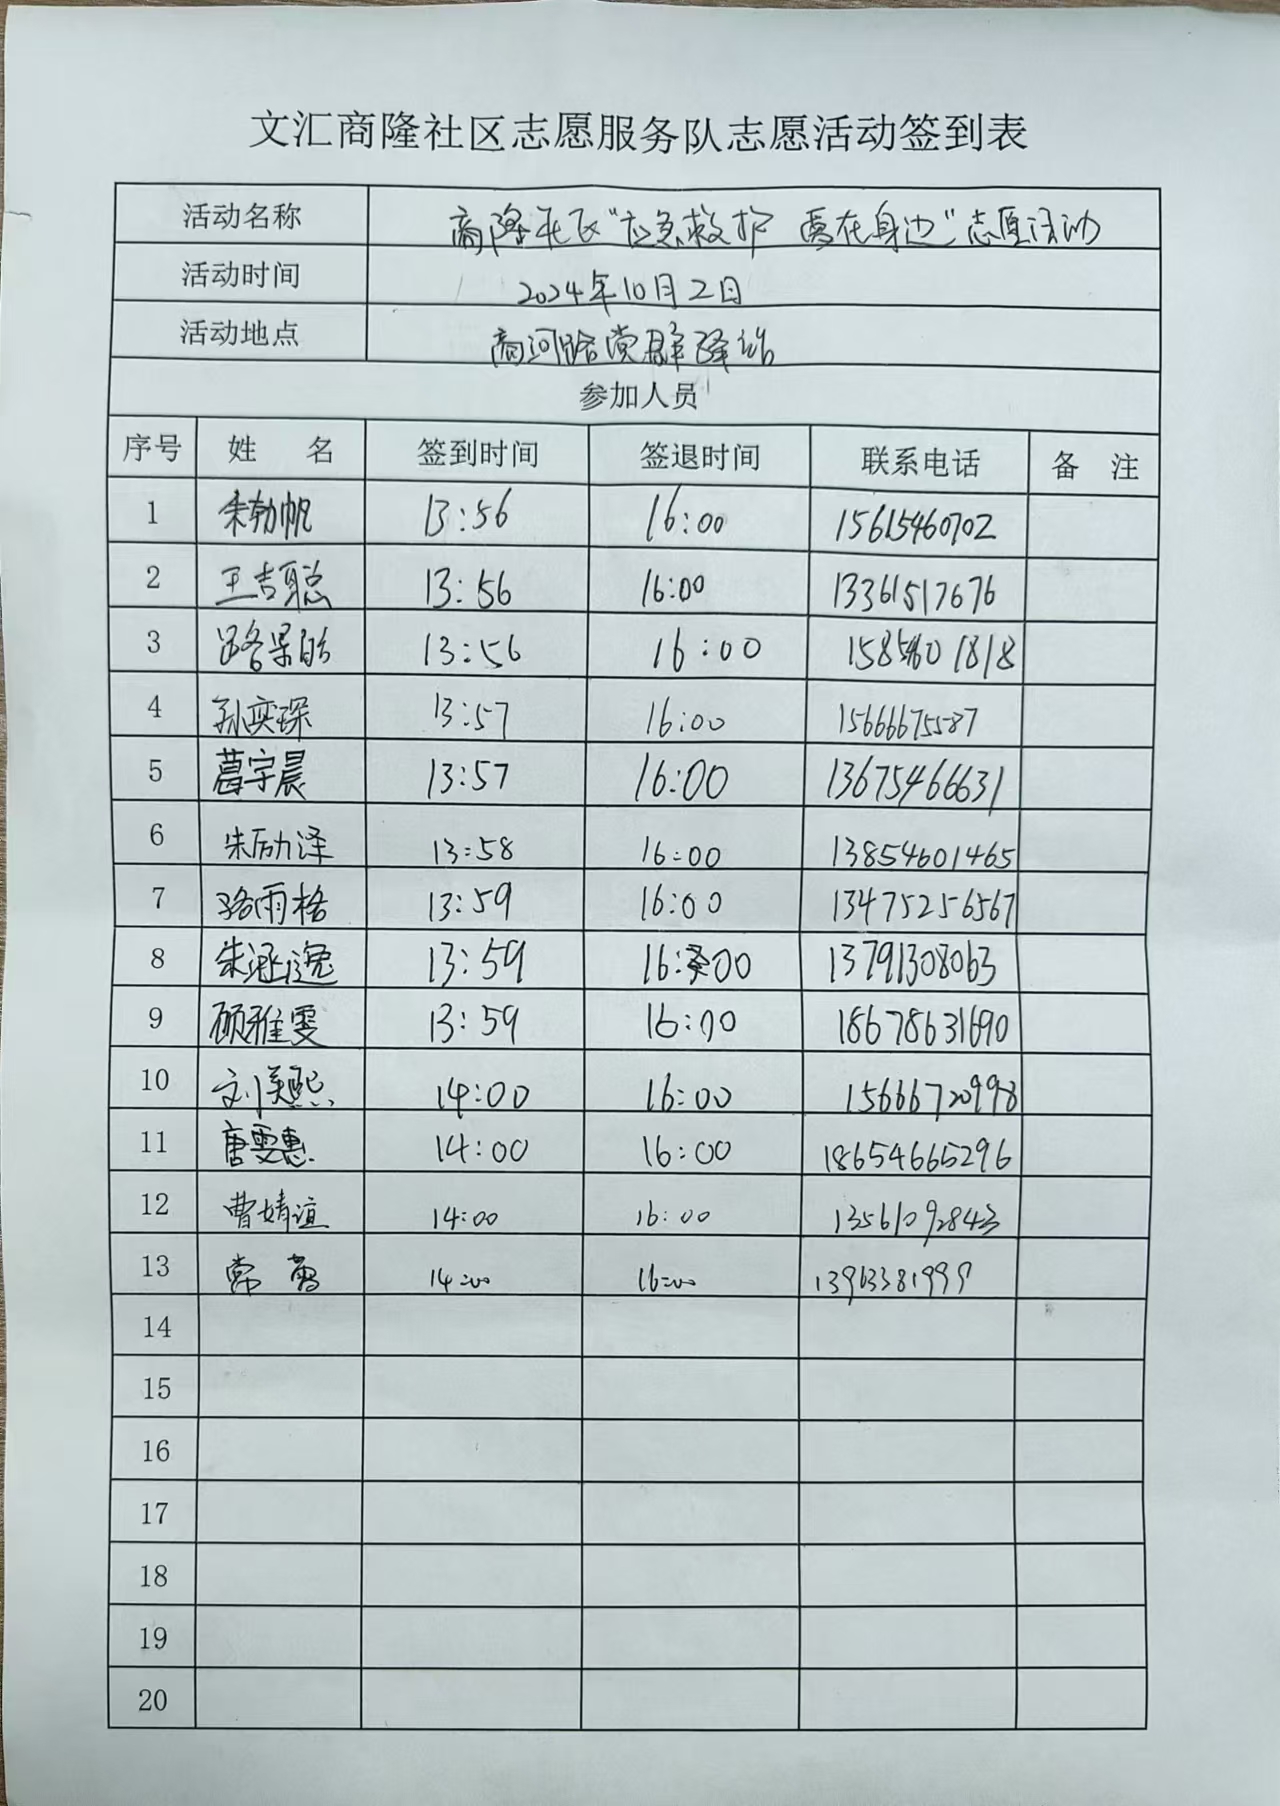 文汇商隆社区志愿服务队志愿活动签到表
活动名称 商隆社区"应急救护 暖在身边"志愿活动
活动时间 2024年10月2日
活动地点 商河路党群驿站
参加人员
序号 姓 名 签到时间 签退时间 联系电话 备 注
1 朱勃帆 13:56 16:00 15615460702
2 王吉聪 13:56 16:00 13361517676
3 13:56 16:00 15854601818
4 孙奕琛 13:57 16:00 15666675587
5 葛宇晨 13:57 16:00 13675466631
6 朱励泽 13:58 16:00 13854601465
7 路雨格 13:59 16:00 13475256567
8 朱涵逸 13:59 16:00 13791308063
9 顾雅雯 13:59 16:00 18678631690
10 刘美熙 14:00 16:00 15666720998
11 唐雯惠 14:00 16:00 18654665296
12 曹婧谊 14:00 16:00 13561092843
13 常 14:00 16:00 13963381999
14
15
16
17
18
19
20